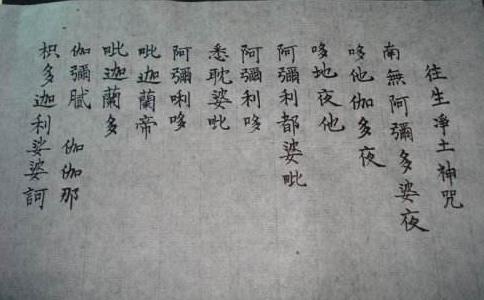 往生淨土神咒
南無阿彌多婆夜
哆他伽多夜
哆地夜他
阿彌利都婆毗
阿彌利哆
悉耽婆吡
阿彌唎哆
吡迦蘭帝
吡迦蘭多
伽彌膩 伽伽那
枳多迦利娑婆訶